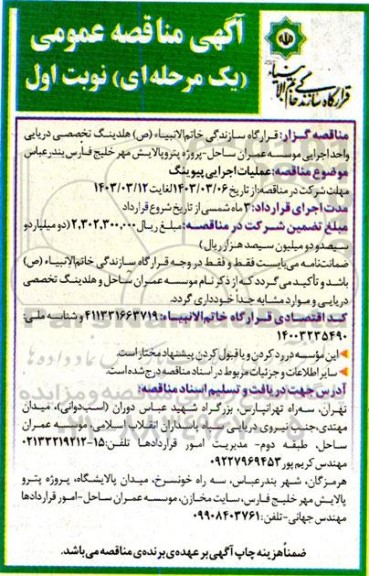 آگهی مناقصه عمومی
(یک مرحله ای) نوبت اول
قرارگاه سازندگی خاتم الانبیاء
مناقصه گزار: قرارگاه سازندگی خاتم‌الانبیاء (ص) هلدینگ تخصصی دریایی
واحد اجرایی موسسه عمران ساحل-پروژه پتروپالایش مهر خلیج فارس بندرعباس
موضوع مناقصه: عملیات اجرایی پیوینگ
مهلت شرکت در مناقصه: از تاریخ ۱۴۰۳/۰۳/۰۶ لغایت ۱۴۰۳/۰۳/۱۲
مدت اجرای قرارداد: ۳ ماه شمسی از تاریخ شروع قرارداد
مبلغ تضمین شرکت در مناقصه: مبلغ ریال ۲,۳۰۲,۳۰۰,۰۰۰ (دو میلیارد و
سیصد و دو میلیون سیصد هزار ریال)
ضمانت‌نامه می‌بایست فقط و فقط در وجه قرارگاه سازندگی خاتم‌الانبیاء (ص)
باشد و تأکید می گردد که از ذکر نام موسسه عمران ساحل و هلدینگ تخصصی
دریایی و موارد مشابه جدا خودداری گردد.
کد اقتصادی قرارگاه خاتم‌الانبیاء: ۴۱۱۳۲۱۶۶۳۷۱۹ و شناسه ملی:
۱۴۰۰۳۲۳۵۴۹۰
این مؤسسه در رد کردن و یا قبول کردن پیشنهاد مختار است.
سایر اطلاعات و جزئیات مربوط در اسناد مناقصه درج شده است.
آدرس جهت دریافت و تسلیم اسناد مناقصه:
تهران، سه‌راه تهرانپارس، بزرگراه شهید عباس دوران (اسب‌دوانی)، میدان
مهتدی، جنب نیروی دریایی سپاه پاسداران انقلاب اسلامی موسسه عمران
ساحل، طبقه دوم- مدیریت امور قراردادها تلفن: ۱۵-۰۲۱۳۳۲۱۹۲۱۲
مهندس کریم پور ۰۹۲۲۷۹۶۹۴۵۳
هرمزگان، شهر بندرعباس، سه راه خونسرخ، میدان پالایشگاه، پروژه پترو
پالایش مهر خلیج فارس، سایت مخازن، موسسه عمران ساحل-امور قراردادها
مهندس جهانی-تلفن: ۰۹۹۰۸۴۰۳۷۶۱
ضمناً هزینه چاپ آگهی بر عهده‌ی برنده‌ی مناقصه می باشد.